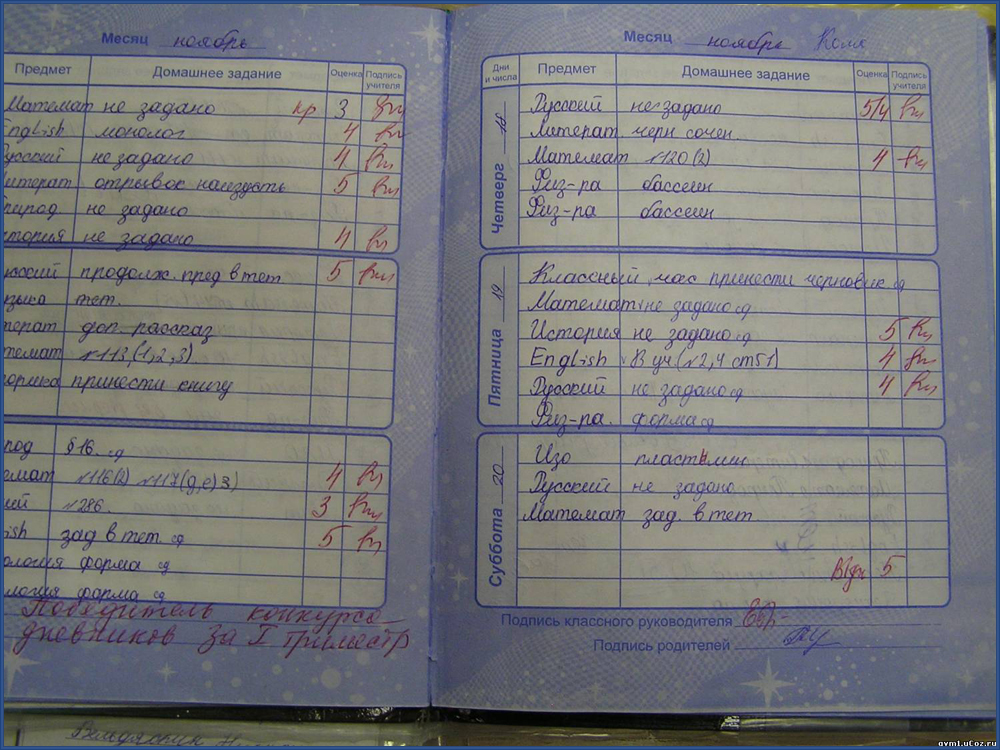 Месяц ноябрь
Предмет Домашнее задание Оценка Подпись учителя
Математ не задано кр 3
English монолог 4
Русский не задано 4
Литерат отрывок наизусть 5
Природ не задано
история не задано 4
усский продолж. пред в тет. 5
узыка тет.
терат доп. рассказ
темат №113,(1,2,3)
торика принести книгу
род §16. сд
емат №116(2) №117(д,е)3) 4
ий №286. 3
lish зад в тет. сд 5
ология форма сд
логия форма сд
Победитель конкурса
дневников за I триместр
Месяц ноябрь Коля
Дни и числа Предмет Домашнее задание Оценка Подпись учителя
Четверг 18
Русский не задано 5/4
Литерат. черн сочен.
Математ №120(2) 4
Физ-ра бассеин
Физ-ра бассеин
Пятница 19
Классный час принести черновик сд
Математ не задано сд
История не задано сд 5
English В уч (№2,4 ст51) 4
Русский не задано сд 4
Физ-ра. форма сд
Суббота 20
Изо пластилин
Русский не задано
Математ зад. в тет
Вдн 5
Подпись классного руководителя
Подпись родителей
avm1.uCoz.ru